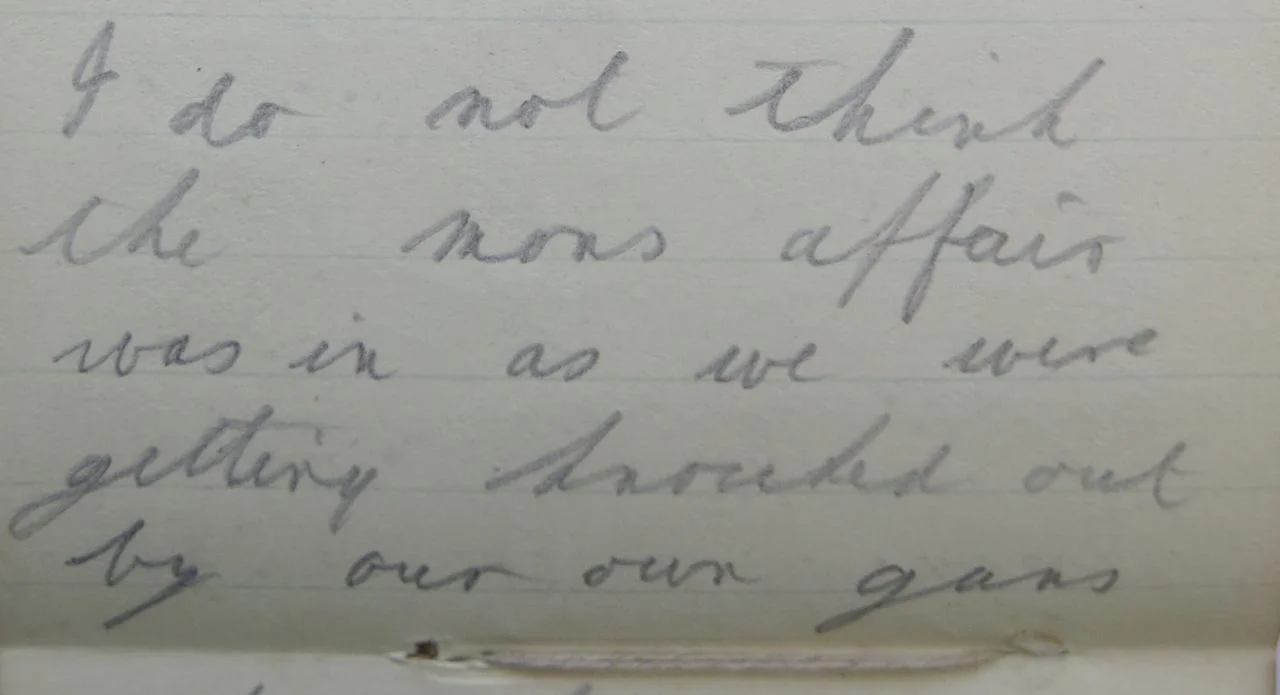 I do not think
the mons affair
was in as we were
getting knouked out
by our own guns